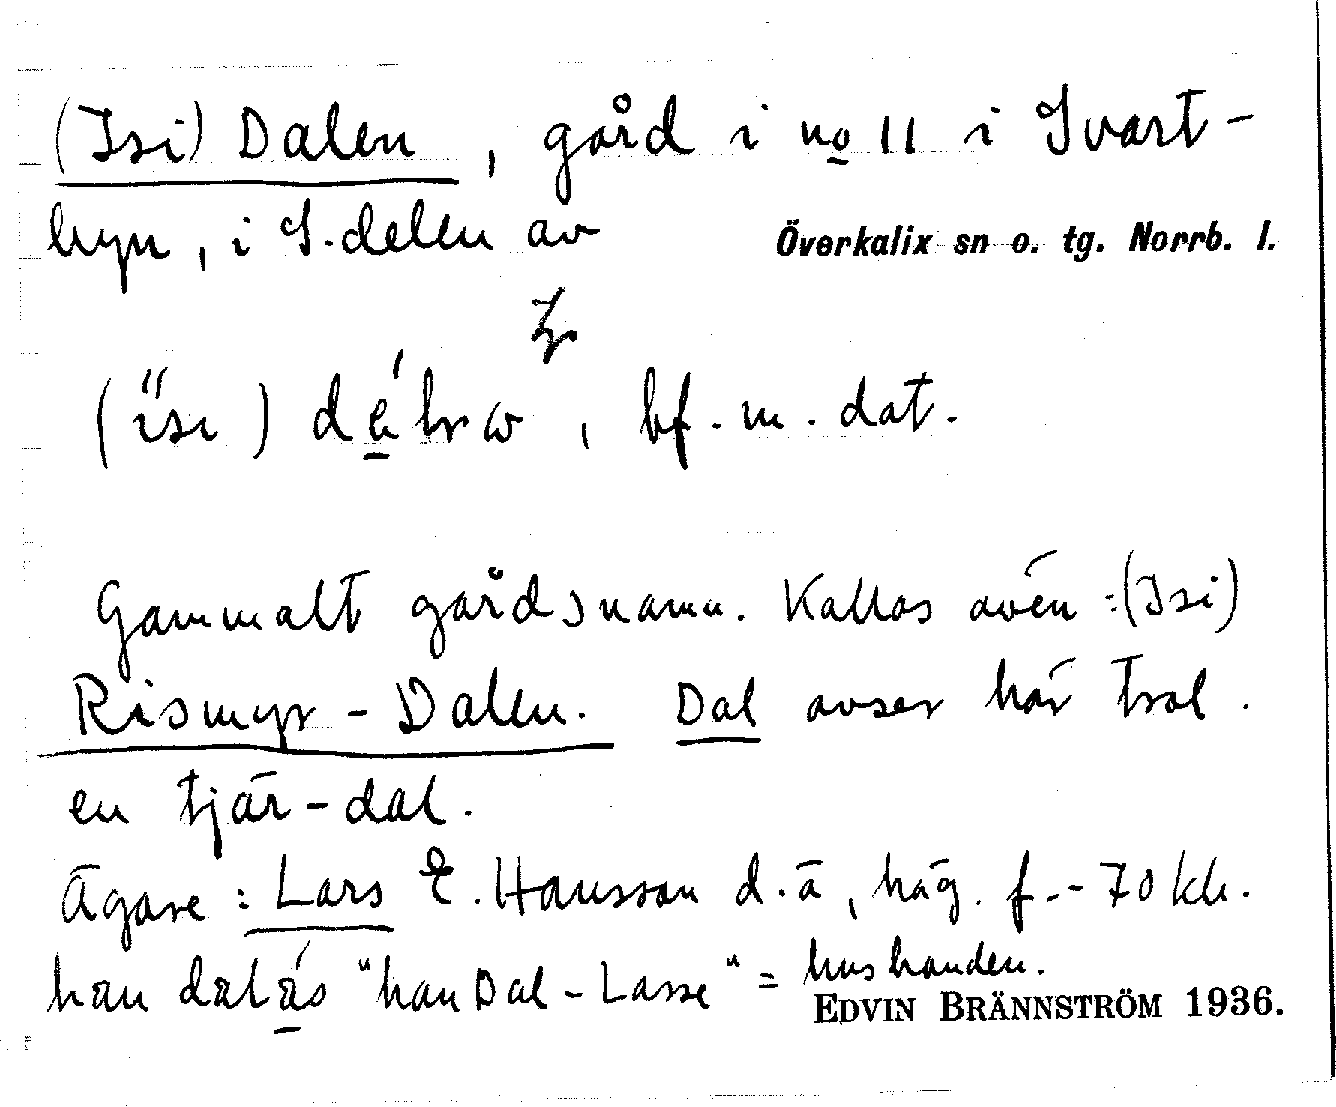 (Isi) Dalen, gård i no 11 i Svart-
byn, i S. delen av
Överkalix sn o. tg. Norrb. l.
bf. m. dat.
Gammalt gårdsnamn. Kallas även: (Isi)
Rismyr-Dalen. Dal avser här trol.
en tjär-dal.
Ägare: Lars E. Hansson d.ä, häg. f.-70 kh.
han dalás "han Dal-Lasse" = husbonden.
EDVIN BRÄNNSTRÖM 1936.